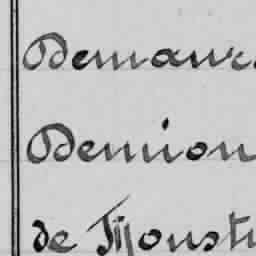 Demaur
Demion
de Moustu